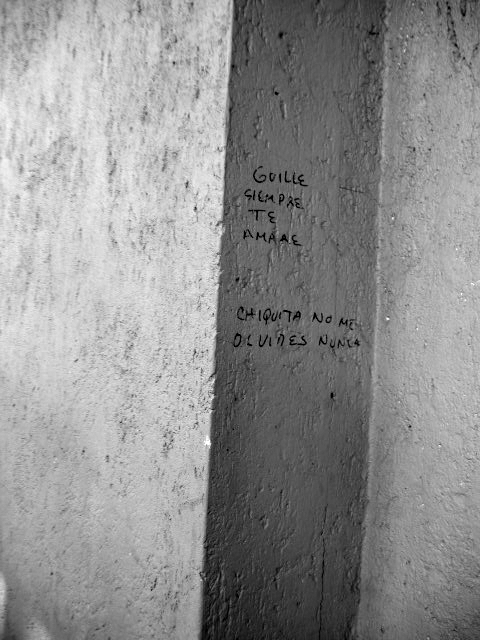 GUILLE
SIEMPRE
TE
AMARE
CHIQUITA NO ME
OLVIDES NUNCA